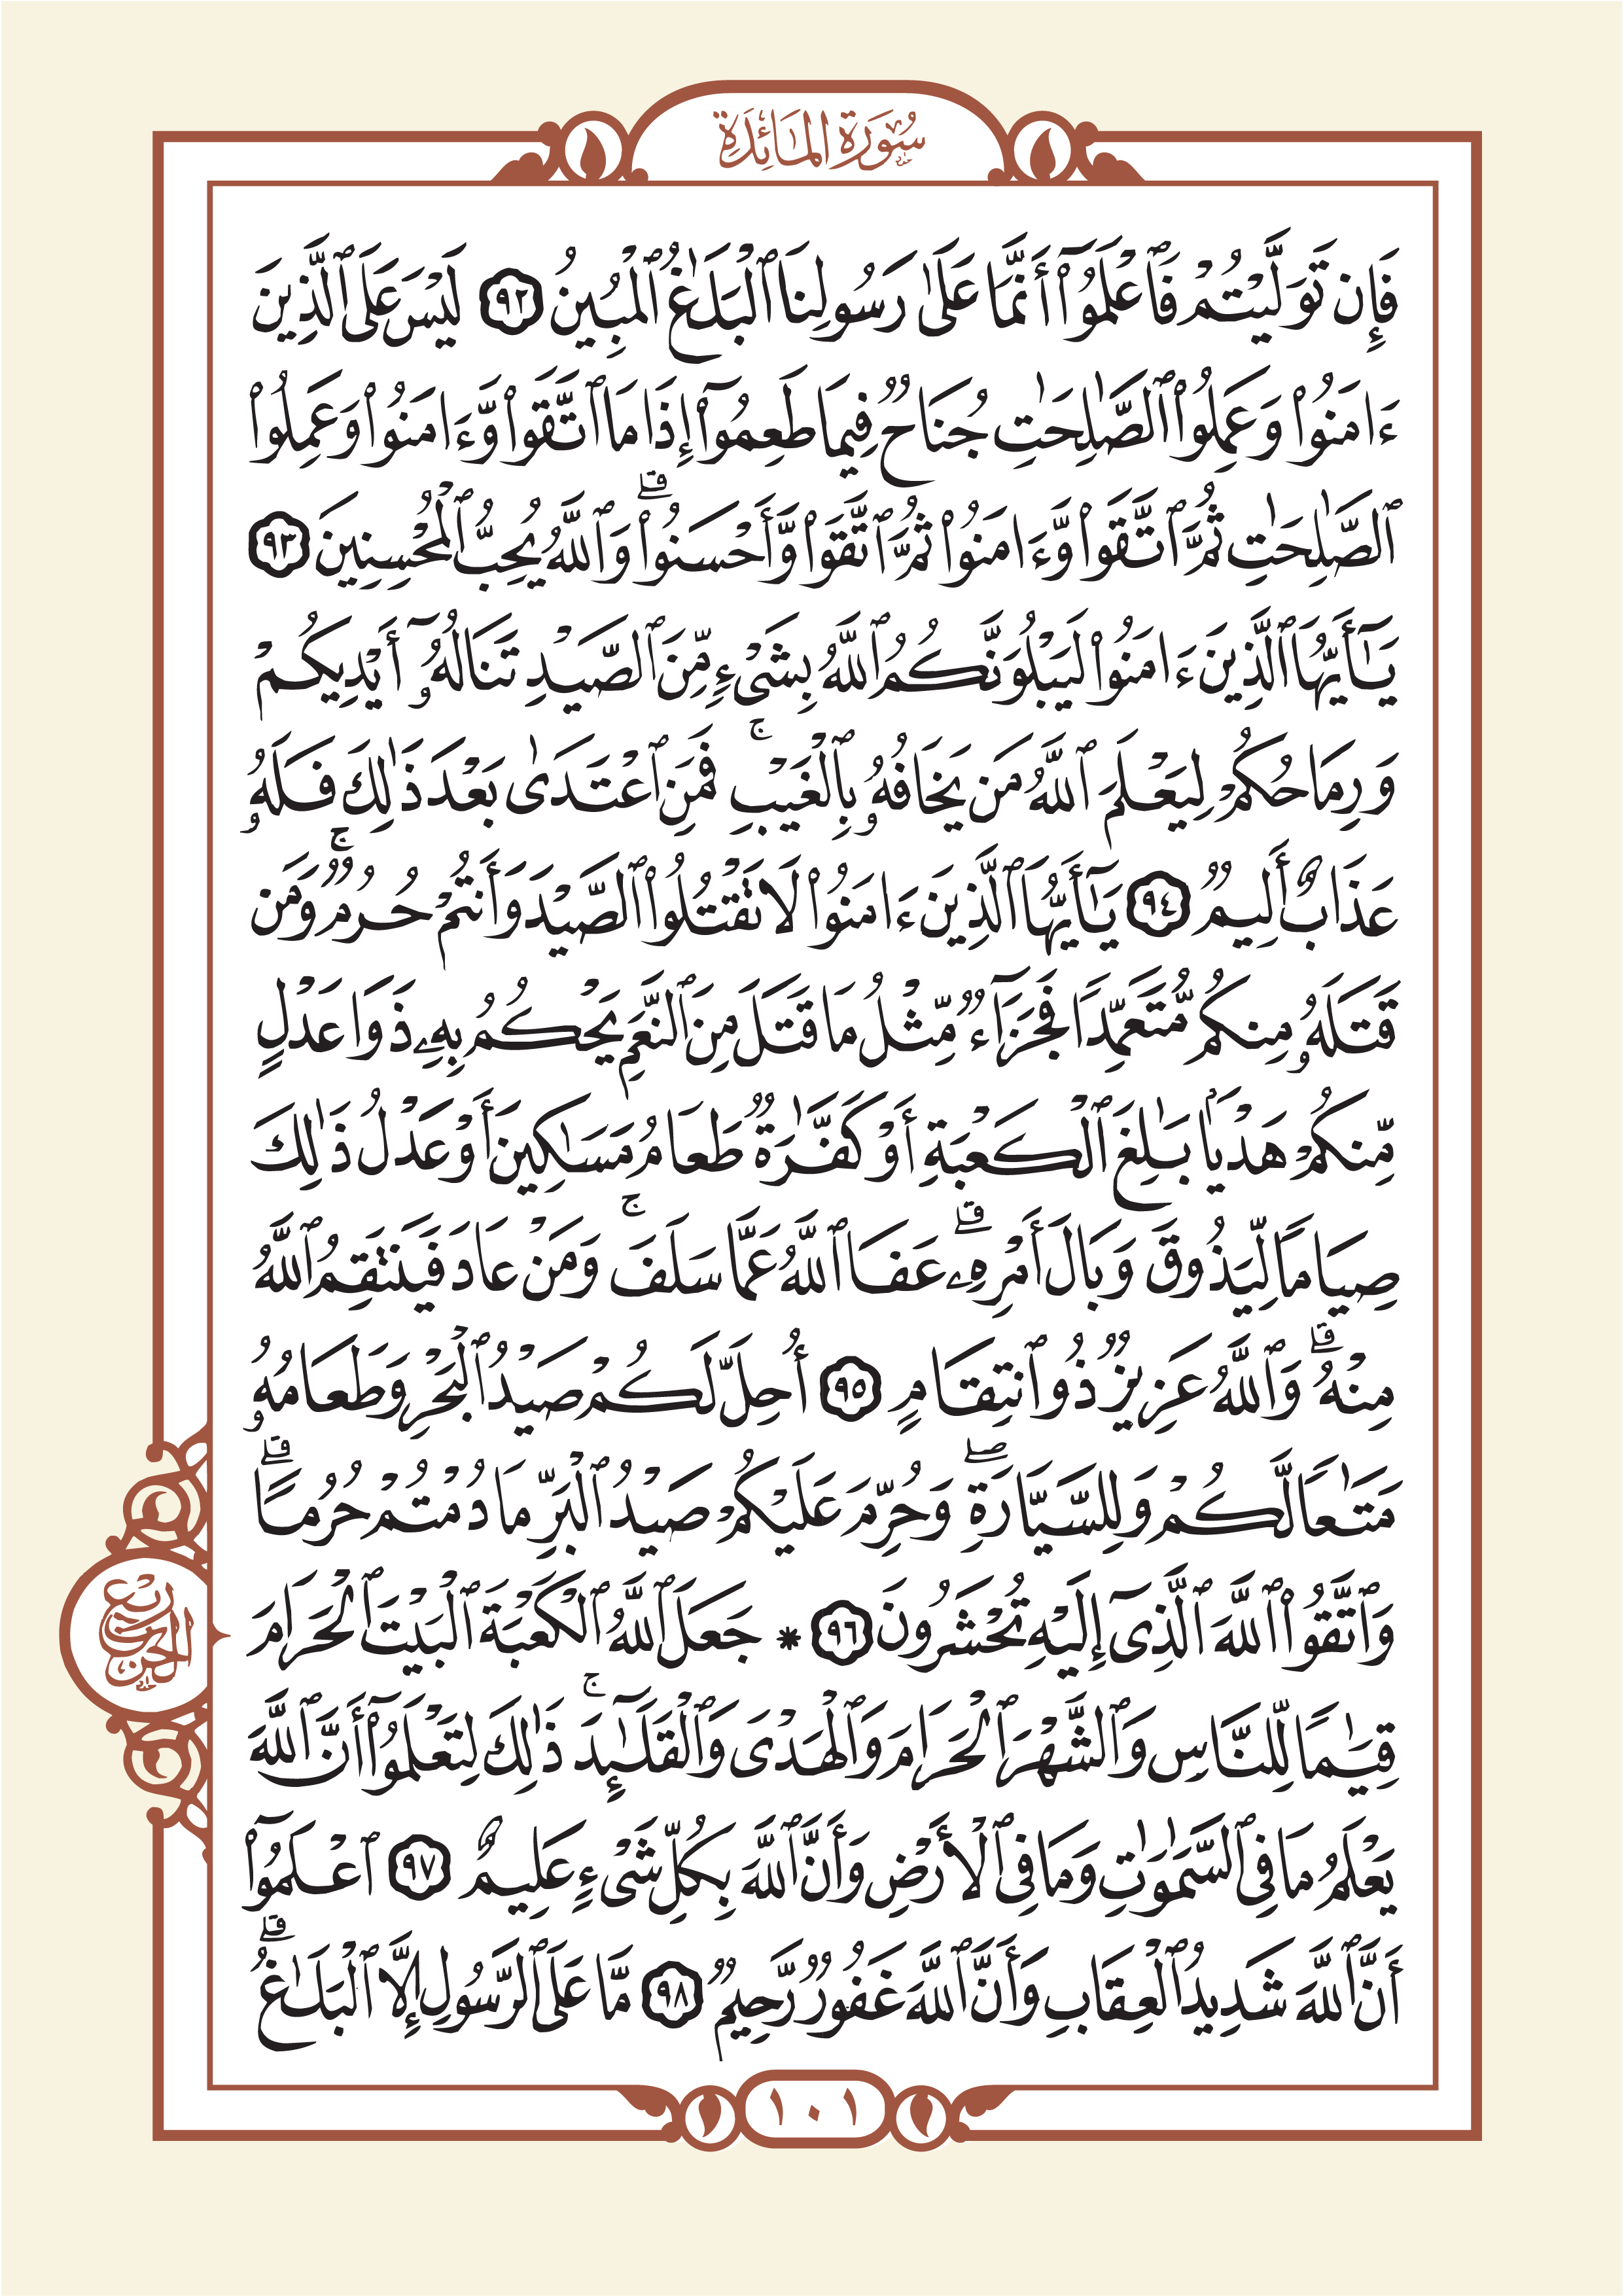 سُورَةُ المَائِدَةِ
فَإِن تَوَلَّيْتُمْ فَٱعْلَمُوٓا۟ أَنَّمَا عَلَىٰ رَسُولِنَا ٱلْبَلَٰغُ ٱلْمُبِينُ ٩٢ لَيْسَ عَلَى ٱلَّذِينَ
ءَامَنُوا۟ وَعَمِلُوا۟ ٱلصَّٰلِحَٰتِ جُنَاحٌ فِيمَا طَعِمُوٓا۟ إِذَا مَا ٱتَّقَوا۟ وَّءَامَنُوا۟ وَعَمِلُوا۟
ٱلصَّٰلِحَٰتِ ثُمَّ ٱتَّقَوا۟ وَّءَامَنُوا۟ ثُمَّ ٱتَّقَوا۟ وَّأَحْسَنُوا۟ ۗ وَٱللَّهُ يُحِبُّ ٱلْمُحْسِنِينَ ٩٣
يَٰٓأَيُّهَا ٱلَّذِينَ ءَامَنُوا۟ لَيَبْلُوَنَّكُمُ ٱللَّهُ بِشَىْءٍ مِّنَ ٱلصَّيْدِ تَنَالُهُۥٓ أَيْدِيكُمْ
وَرِمَاحُكُمْ لِيَعْلَمَ ٱللَّهُ مَن يَخَافُهُۥ بِٱلْغَيْبِ ۚ فَمَنِ ٱعْتَدَىٰ بَعْدَ ذَٰلِكَ فَلَهُۥ
عَذَابٌ أَلِيمٌ ٩٤ يَٰٓأَيُّهَا ٱلَّذِينَ ءَامَنُوا۟ لَا تَقْتُلُوا۟ ٱلصَّيْدَ وَأَنتُمْ حُرُمٌ ۚ وَمَن
قَتَلَهُۥ مِنكُم مُّتَعَمِّدًا فَجَزَآءٌ مِّثْلُ مَا قَتَلَ مِنَ ٱلنَّعَمِ يَحْكُمُ بِهِۦ ذَوَا عَدْلٍ
مِّنكُمْ هَدْيًۢا بَٰلِغَ ٱلْكَعْبَةِ أَوْ كَفَّٰرَةٌ طَعَامُ مَسَٰكِينَ أَوْ عَدْلُ ذَٰلِكَ
صِيَامًا لِّيَذُوقَ وَبَالَ أَمْرِهِۦ ۗ عَفَا ٱللَّهُ عَمَّا سَلَفَ ۚ وَمَنْ عَادَ فَيَنتَقِمُ ٱللَّهُ
مِنْهُ ۗ وَٱللَّهُ عَزِيزٌ ذُو ٱنتِقَامٍ ٩٥ أُحِلَّ لَكُمْ صَيْدُ ٱلْبَحْرِ وَطَعَامُهُۥ
مَتَٰعًا لَّكُمْ وَلِلسَّيَّارَةِ ۖ وَحُرِّمَ عَلَيْكُمْ صَيْدُ ٱلْبَرِّ مَا دُمْتُمْ حُرُمًا ۗ
وَٱتَّقُوا۟ ٱللَّهَ ٱلَّذِىٓ إِلَيْهِ تُحْشَرُونَ ٩٦ * جَعَلَ ٱللَّهُ ٱلْكَعْبَةَ ٱلْبَيْتَ ٱلْحَرَامَ
قِيَٰمًا لِّلنَّاسِ وَٱلشَّهْرَ ٱلْحَرَامَ وَٱلْهَدْىَ وَٱلْقَلَٰٓئِدَ ۚ ذَٰلِكَ لِتَعْلَمُوٓا۟ أَنَّ ٱللَّهَ
يَعْلَمُ مَا فِى ٱلسَّمَٰوَٰتِ وَمَا فِى ٱلْأَرْضِ وَأَنَّ ٱللَّهَ بِكُلِّ شَىْءٍ عَلِيمٌ ٩٧ ٱعْلَمُوٓا۟
أَنَّ ٱللَّهَ شَدِيدُ ٱلْعِقَابِ وَأَنَّ ٱللَّهَ غَفُورٌ رَّحِيمٌ ٩٨ مَّا عَلَى ٱلرَّسُولِ إِلَّا ٱلْبَلَٰغُ ۗ
ربع الحزب
١٠١